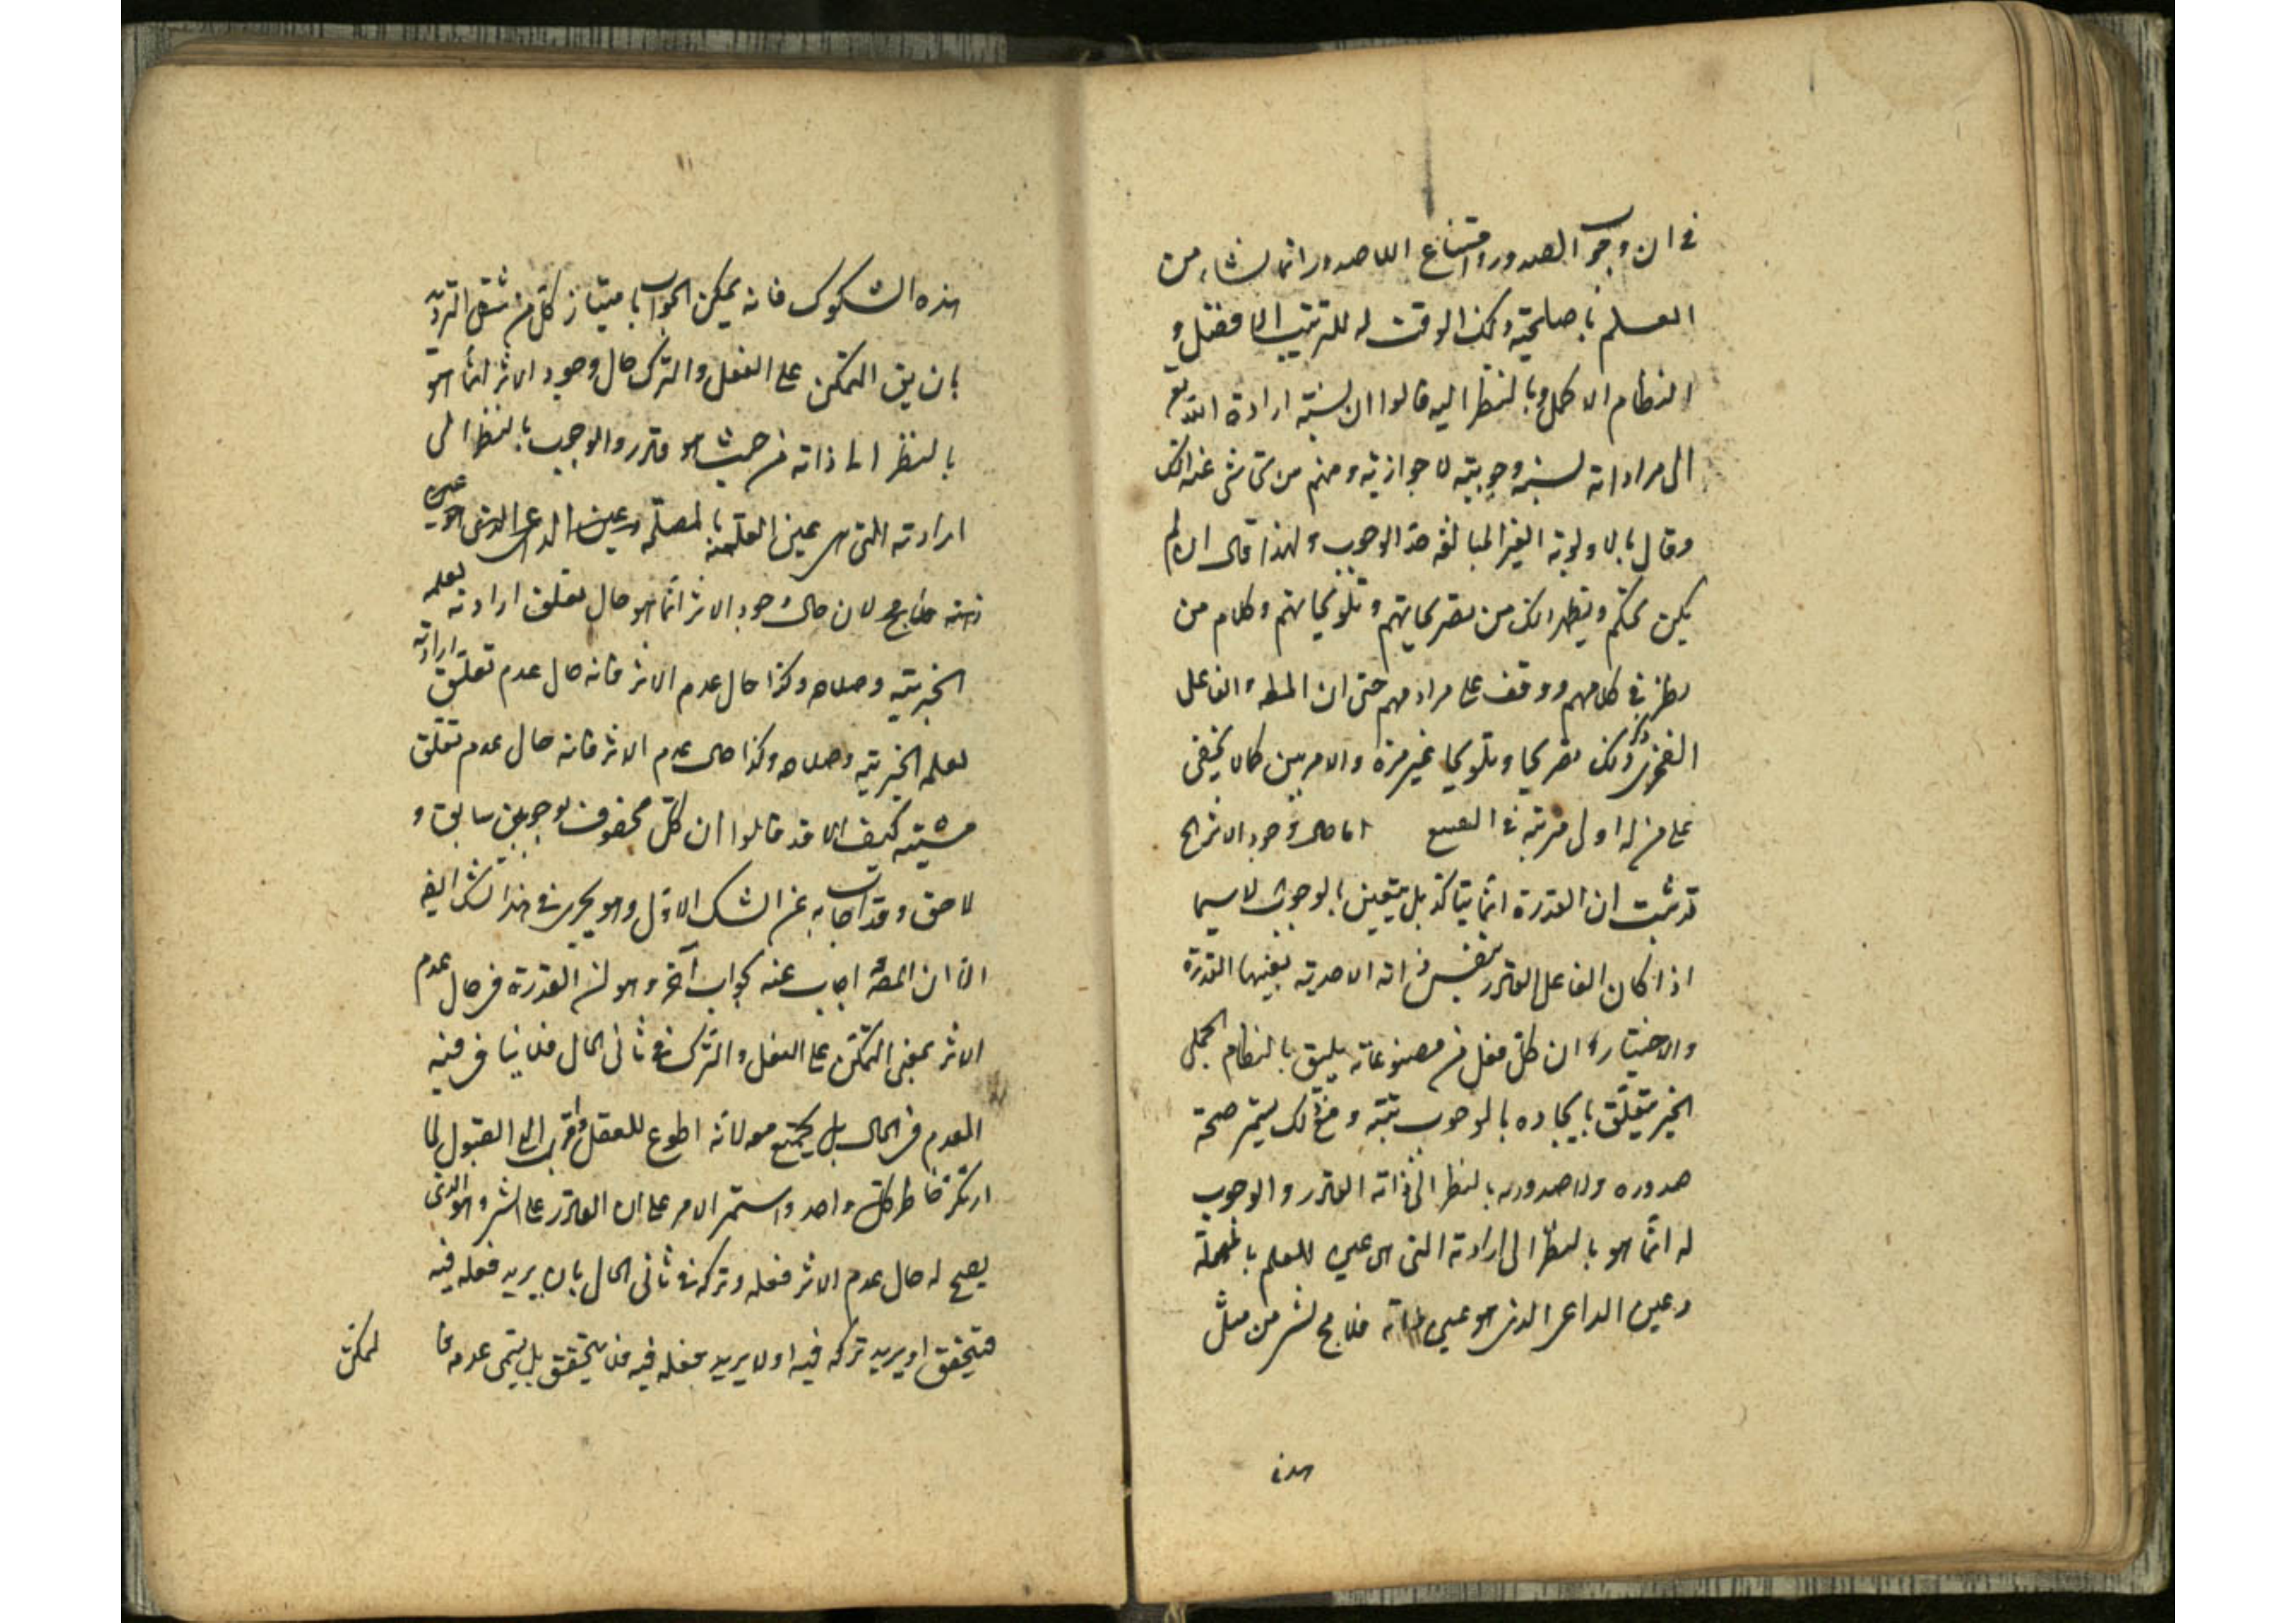 في ان وجوب الصدور وامتناع اللاصدور انما نشاء من
العلم باصلحيته وذلك الوقت له للترتيب الافضل و
النظام الاكمل وبالنظر اليه قالوا ان نسبة ارادة الله تع
الى مراداته نسبة وجوبية لا جوازية ومنهم من تحاشى عن ذلك
وقال بالاولوية الغير البالغة حد الوجوب ولهذا قال ان لم
يكن بحكم ويظهر لك من تصريحاتهم وتلويحاتهم وكلام من
نظر في كلامهم ووقف على مرادهم حتى ان الفاعل
ذكر ذلك تصريحا وتلويحا غير مرة والامر بين كما لا يخفى
على من له اولى مرتبة في اما حال وجود الاثر الخ
قد ثبت ان القدرة انما يتأكد بل يتعين بالوجوب لا سيما
اذا كان الفاعل القادر بنفس ذاته الاحدية بعينها القدرة
والاختيار وان كل فعل من مصنوعاته يليق بالنظام الجملي
الخير متعلق بايجاده بالوجوب بتة ومع ذلك يستمر صحة
صدوره ولا صدوره بالنظر الى ذاته القادر والوجوب
له انما هو بالنظر الى ارادته التي هي عين العلم بالمصلحة
وعين الداعي الذي هو عين ذاته فلا مح لشر من مثل
هذه
هذه الشكوك فانه يمكن الجواب باختيار كل من شقي الترديد
بان يق التمكن على الفعل والترك حال وجود الاثر انما هو
بالنظر الى ذاته من حيث هو قادر والوجوب بالنظر الى
ارادته التي هي عين العلم بالمصلحة وعين الداعي الذي هو عين
ذاته لان حال وجود الاثر انما هو حال تعلق ارادته بعلمه
الخيرية وصلاحه وكذا حال عدم الاثر فانه حال عدم تعلق ارادته
لعلمه الخيرية وصلاحه وكذا حال عدم الاثر فانه حال عدم تعلق
مشيته كيف لا وقد قالوا ان كل محفوف بوجوبين سابق و
لاحق وقد اجاب به عن الشك الاول وهو يجري في هذا الشك ايضا
الا ان المص اجاب عنه بجواب آخر وهو ان القدرة في حال عدم
الاثر بمعنى التمكن على الفعل والترك في ثاني الحال فلا ينافي فيه
العدم في الحال بل يجتمع معه لانه اطوع للعقل واقرب الى القبول لما
ارتكز خاطر كل واحد واستمر الامر على ان القادر على الشيء هو الذي
يصح له حال عدم الاثر فعله وتركه في ثاني الحال بان يريد فعله فيه
فيتحقق او يريد تركه فيه او لا يريد فعله فيه فلا يتحقق بل يبقى عدمه